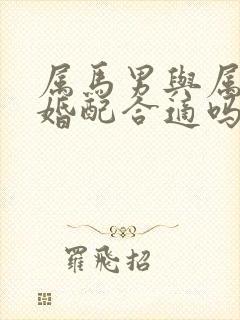 属馬男與属
婚配合適嗎
羅飛招